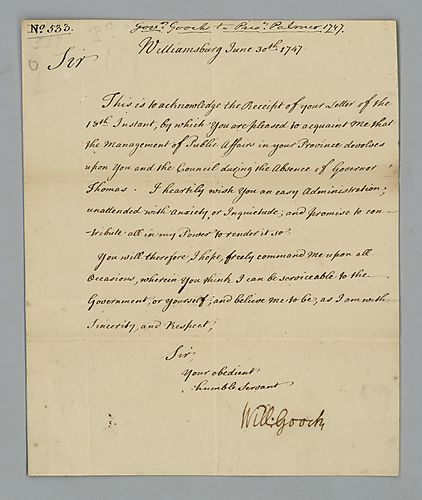 No 533.
Govr. Gooch to Presr. Palmer 1747.
Williamsburg June 30th. 1747
Sir
This is to acknowledge the Receipt of your Letter of the
18th Instant, by which You are pleased to acquaint Me that
the Management of Public Affairs in your Province devolves
upon You and the Council during the Absence of Governor
Thomas. I heartily wish You an easy Administration;
unattended with Anxiety, or Inquietude; and promise to con-
-tribute all in my Power to render it so.
You will therefore, I hope, freely command Me upon all
Occasions, wherein You think I can be serviceable to the
Government, or Yourself; and believe Me to be, as I am with
Sincerity, and Respect,
Sir
Your obedient
humble Servant
Will: Gooch